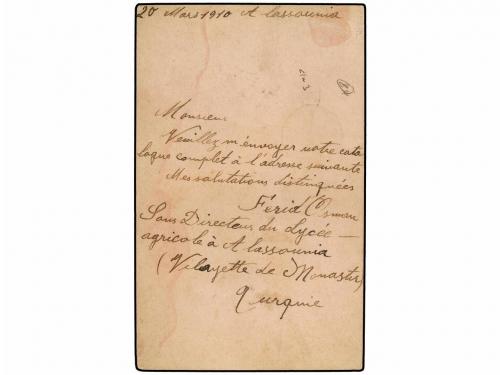 20 Mars 1910 Alassounia
Monsieur
Veuillez m'envoyer votre cata
logue complet à l'adresse suivante
Mes salutations distinguées
Férid Osman
Sous Directeur du Lycée
agricole à Alassounia
(Vilayette de Monastir)
Turquie